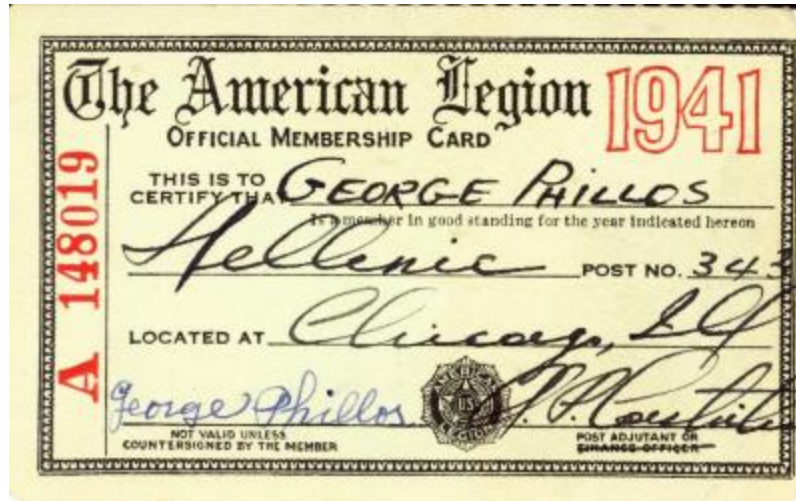 The American Legion 1941
OFFICIAL MEMBERSHIP CARD
A 148019
THIS IS TO
CERTIFY THAT GEORGE PHILLOS
Is a member in good standing for the year indicated hereon
Hellenic POST NO. 343
LOCATED AT Chicago, Ill
George Phillos
AMERICAN
US
LEGION
NOT VALID UNLESS
COUNTERSIGNED BY THE MEMBER
POST ADJUTANT OR
FINANCE OFFICER